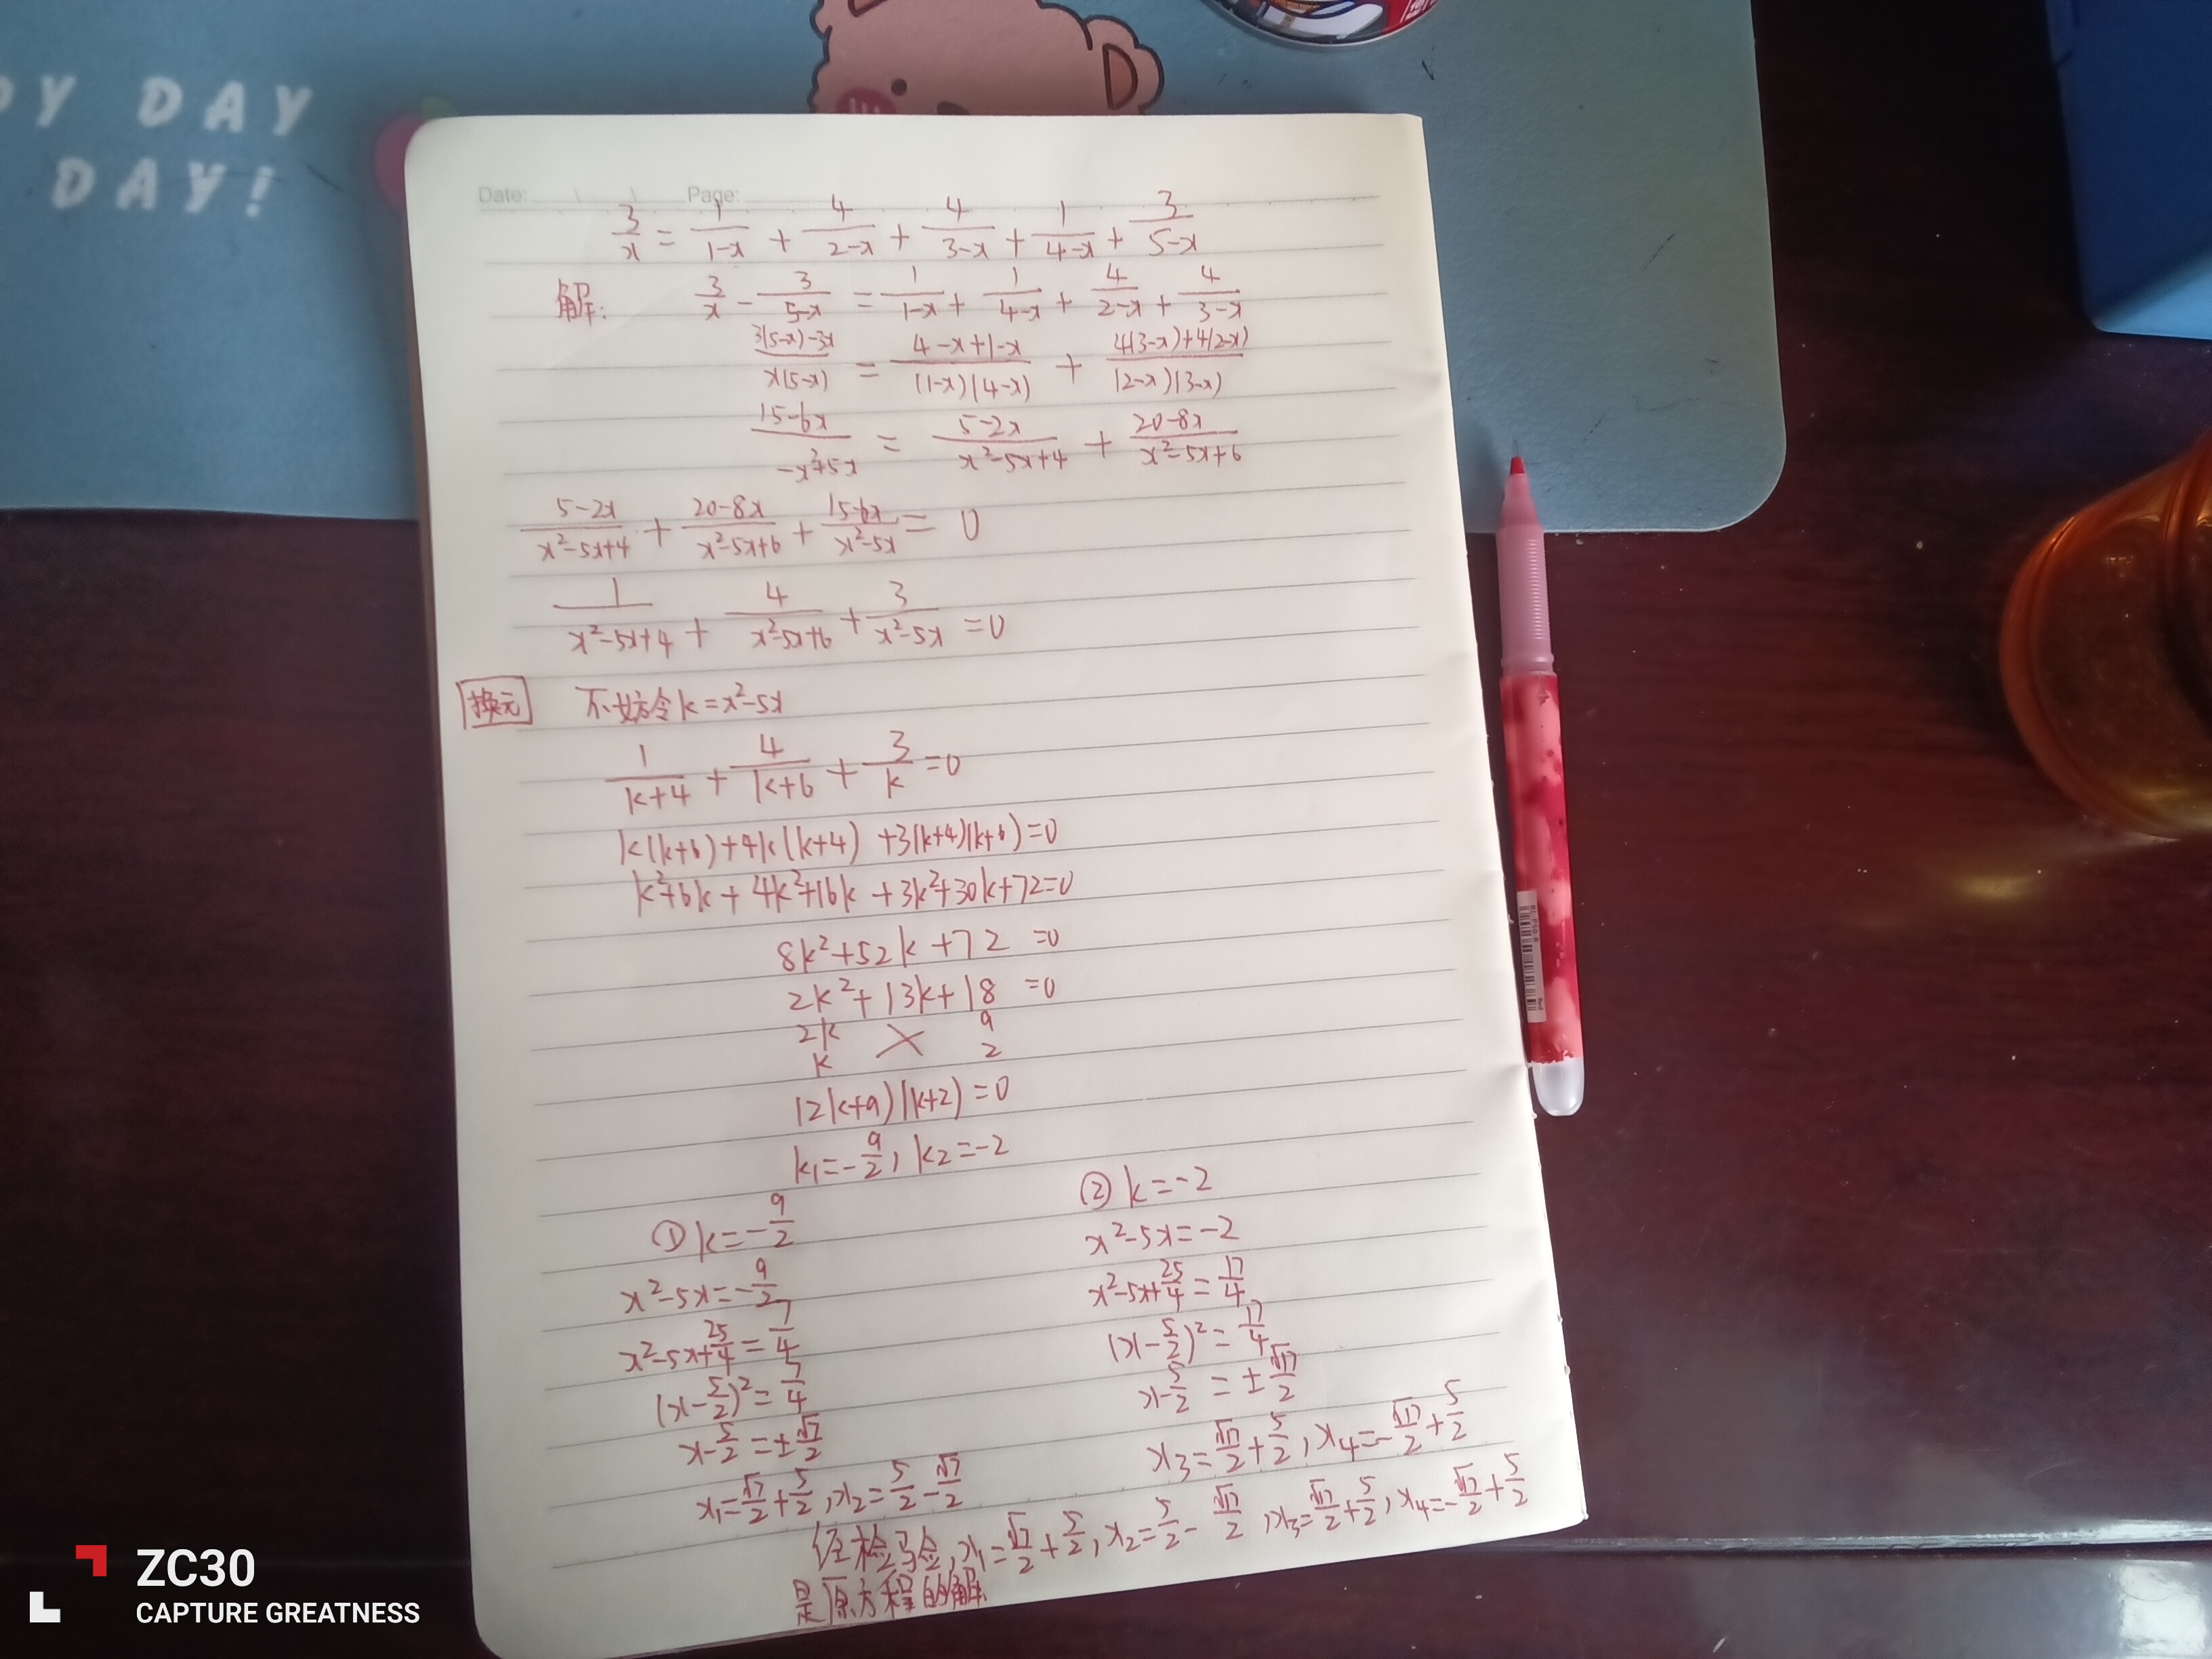 DY DAY
DAY!
Date: Page:
3/x = 1/(1-x) + 4/(2-x) + 4/(3-x) + 1/(4-x) + 3/(5-x)
解: 3/x - 3/(5-x) = 1/(1-x) + 1/(4-x) + 4/(2-x) + 4/(3-x)
(3(5-x)-3x)/(x(5-x)) = (4-x+1-x)/((1-x)(4-x)) + (4(3-x)+4(2-x))/((2-x)(3-x))
(15-6x)/(-x²+5x) = (5-2x)/(x²-5x+4) + (20-8x)/(x²-5x+6)
(5-2x)/(x²-5x+4) + (20-8x)/(x²-5x+6) + (15-6x)/(x²-5x) = 0
1/(x²-5x+4) + 4/(x²-5x+6) + 3/(x²-5x) = 0
换元 不妨令k=x²-5x
1/(k+4) + 4/(k+6) + 3/k = 0
k(k+6)+4k(k+4)+3(k+4)(k+6)=0
k²+6k+4k²+16k+3k²+30k+72=0
8k²+52k+72=0
2k²+13k+18=0
2k 9
k 2
(2k+9)(k+2)=0
k₁=-9/2, k₂=-2
①k=-9/2
x²-5x=-9/2
x²-5x+25/4=7/4
(x-5/2)²=7/4
x-5/2=±√7/2
x₁=√7/2+5/2, x₂=5/2-√7/2
②k=-2
x²-5x=-2
x²-5x+25/4=17/4
(x-5/2)²=17/4
x-5/2=±√17/2
x₃=√17/2+5/2, x₄=-√17/2+5/2
经检验, x₁=√7/2+5/2, x₂=5/2-√17/2, x₃=√17/2+5/2, x₄=-√17/2+5/2
是原方程的解
ZC30
CAPTURE GREATNESS